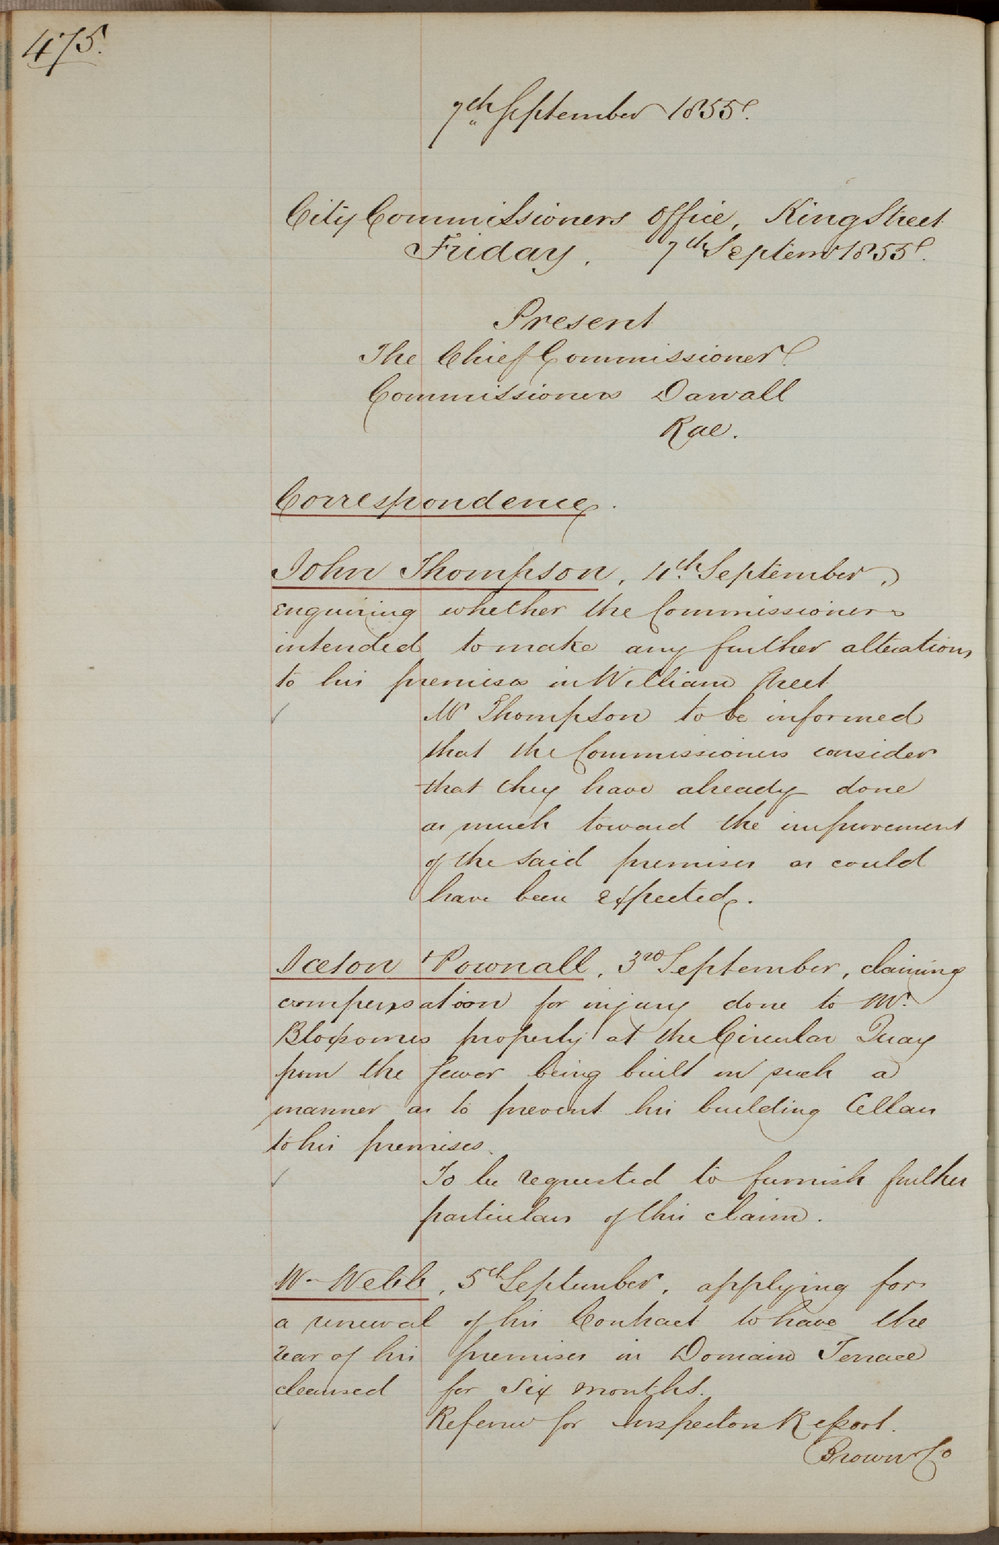 475.
7th September 1855.
City Commissioners Office, King Street
Friday, 7th Septemr 1855.
Present
The Chief Commissioner.
Commissioners Darvall
Rae.
Correspondence.
John Thompson, 4th September,
enquiring whether the Commissioners
intended to make any further alterations
to his premises in William Street
Mr Thompson to be informed
that the Commissioners consider
that they have already done
as much toward the improvement
of the said premises as could
have been expected.
Iceton & Pownall, 3rd September, claiming
compensation for injury done to Mr.
Bloxsomes property at the Circular Quay
from the sewer being built in such a
manner as to prevent his building Cellars
to his premises.
To be requested to furnish further
particulars of this claim.
Wm Webb, 5th September, applying for
a renewal of his Contract to have the
rear of his premises in Domain Terrace
cleansed for six months.
Referred for Inspectors Report.
Brown & Co